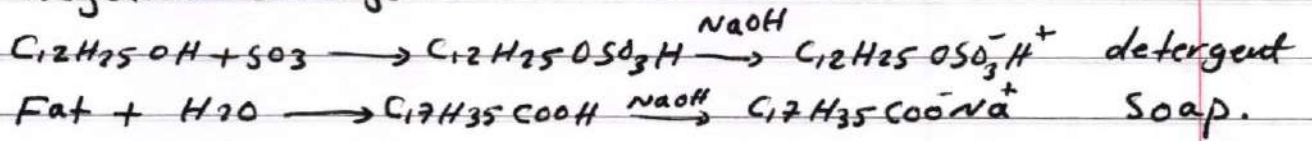 C12H25OH + SO3 ⟶ C12H25OSO3H —NaOH→ C12H25OSO3⁻H⁺ detergent
Fat + H2O ⟶ C17H35COOH —NaOH→ C17H35COO⁻Na⁺ Soap.